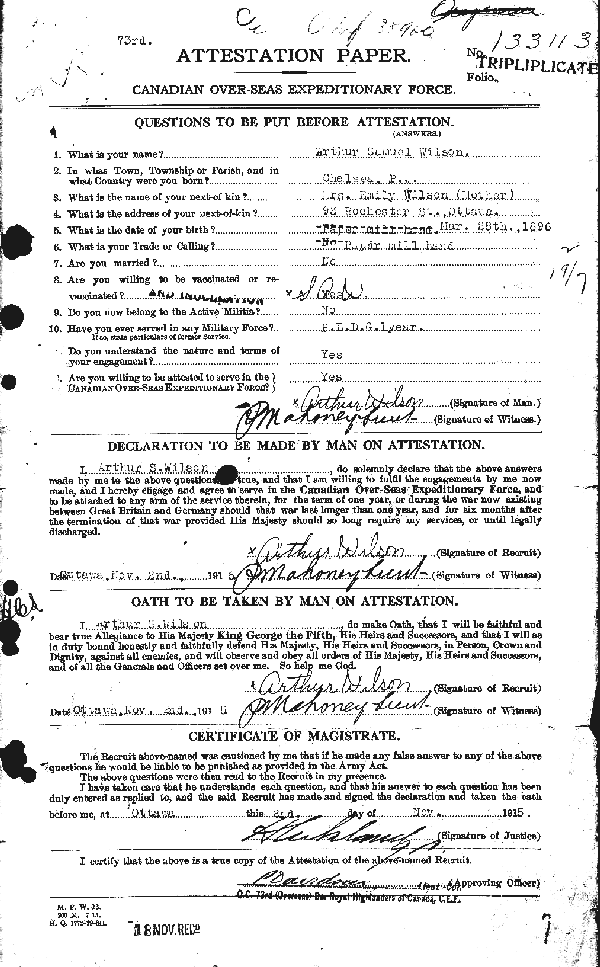 73rd.
No. 133113
ATTESTATION PAPER.
TRIPLIPLICATE
Folio.
CANADIAN OVER-SEAS EXPEDITIONARY FORCE.
QUESTIONS TO BE PUT BEFORE ATTESTATION.
(ANSWERS.)
1. What is your name? Arthur Samuel Wilson.
2. In what Town, Township or Parish, and in
what Country were you born? Chelsea, P..
3. What is the name of your next-of kin? Mrs. Emily Wilson (Mother)
4. What is the address of your next-of-kin? Rochester St., Ottawa.
5. What is the date of your birth? Paper mill hand Mar. 28th., 1896
6. What is your Trade or Calling? No Paper mill hand
7. Are you married? No
8. Are you willing to be vaccinated or re-
vaccinated? AND INOCULATION
9. Do you now belong to the Active Militia? No
10. Have you ever served in any Military Force? P.L.D.G. 1 year.
If so, state particulars of former Service.
Do you understand the nature and terms of
your engagement? Yes
Are you willing to be attested to serve in the Yes
CANADIAN OVER-SEAS EXPEDITIONARY FORCE?
x Arthur Wilson (Signature of Man.)
J Mahoney Lieut (Signature of Witness.)
DECLARATION TO BE MADE BY MAN ON ATTESTATION.
I, Arthur S. Wilson, do solemnly declare that the above answers
made by me to the above questions true, and that I am willing to fulfil the engagements by me now
made, and I hereby engage and agree to serve in the Canadian Over-Seas Expeditionary Force, and
to be attached to any arm of the service therein, for the term of one year, or during the war now existing
between Great Britain and Germany should that war last longer than one year, and for six months after
the termination of that war provided His Majesty should so long require my services, or until legally
discharged.
x Arthur Wilson (Signature of Recruit)
Date Ottawa, Nov. 2nd., 191 J Mahoney Lieut (Signature of Witness)
OATH TO BE TAKEN BY MAN ON ATTESTATION.
I, Arthur S. Wilson, do make Oath, that I will be faithful and
bear true Allegiance to His Majesty King George the Fifth, His Heirs and Successors, and that I will as
in duty bound honestly and faithfully defend His Majesty, His Heirs and Successors, in Person, Crown and
Dignity, against all enemies, and will observe and obey all orders of His Majesty, His Heirs and Successors,
and of all the Generals and Officers set over me. So help me God.
x Arthur Wilson (Signature of Recruit)
Date Ottawa, Nov. 2nd. 191 J Mahoney Lieut (Signature of Witness)
CERTIFICATE OF MAGISTRATE.
The Recruit above-named was cautioned by me that if he made any false answer to any of the above
questions he would be liable to be punished as provided in the Army Act.
The above questions were then read to the Recruit in my presence.
I have taken care that he understands each question, and that his answer to each question has been
duly entered as replied to, and the said Recruit has made and signed the declaration and taken the oath
before me, at Ottawa this 2nd. day of Nov. 1915.
(Signature of Justice)
I certify that the above is a true copy of the Attestation of the above-named Recruit.
(Approving Officer)
O.C. 73rd (Overseas) Bn Royal Highlanders of Canada, C.E.F.
M. F. W. 23.
H. Q. 1772-39-841.
18 NOV. REC'D
7